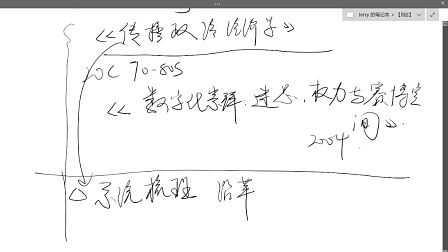 《传播政治经济学》
20C 70-80s
《数字化崇拜：迷思、权力与赛博空间》
2004
△ 系统梳理 沿革
Jerry 的笔记本